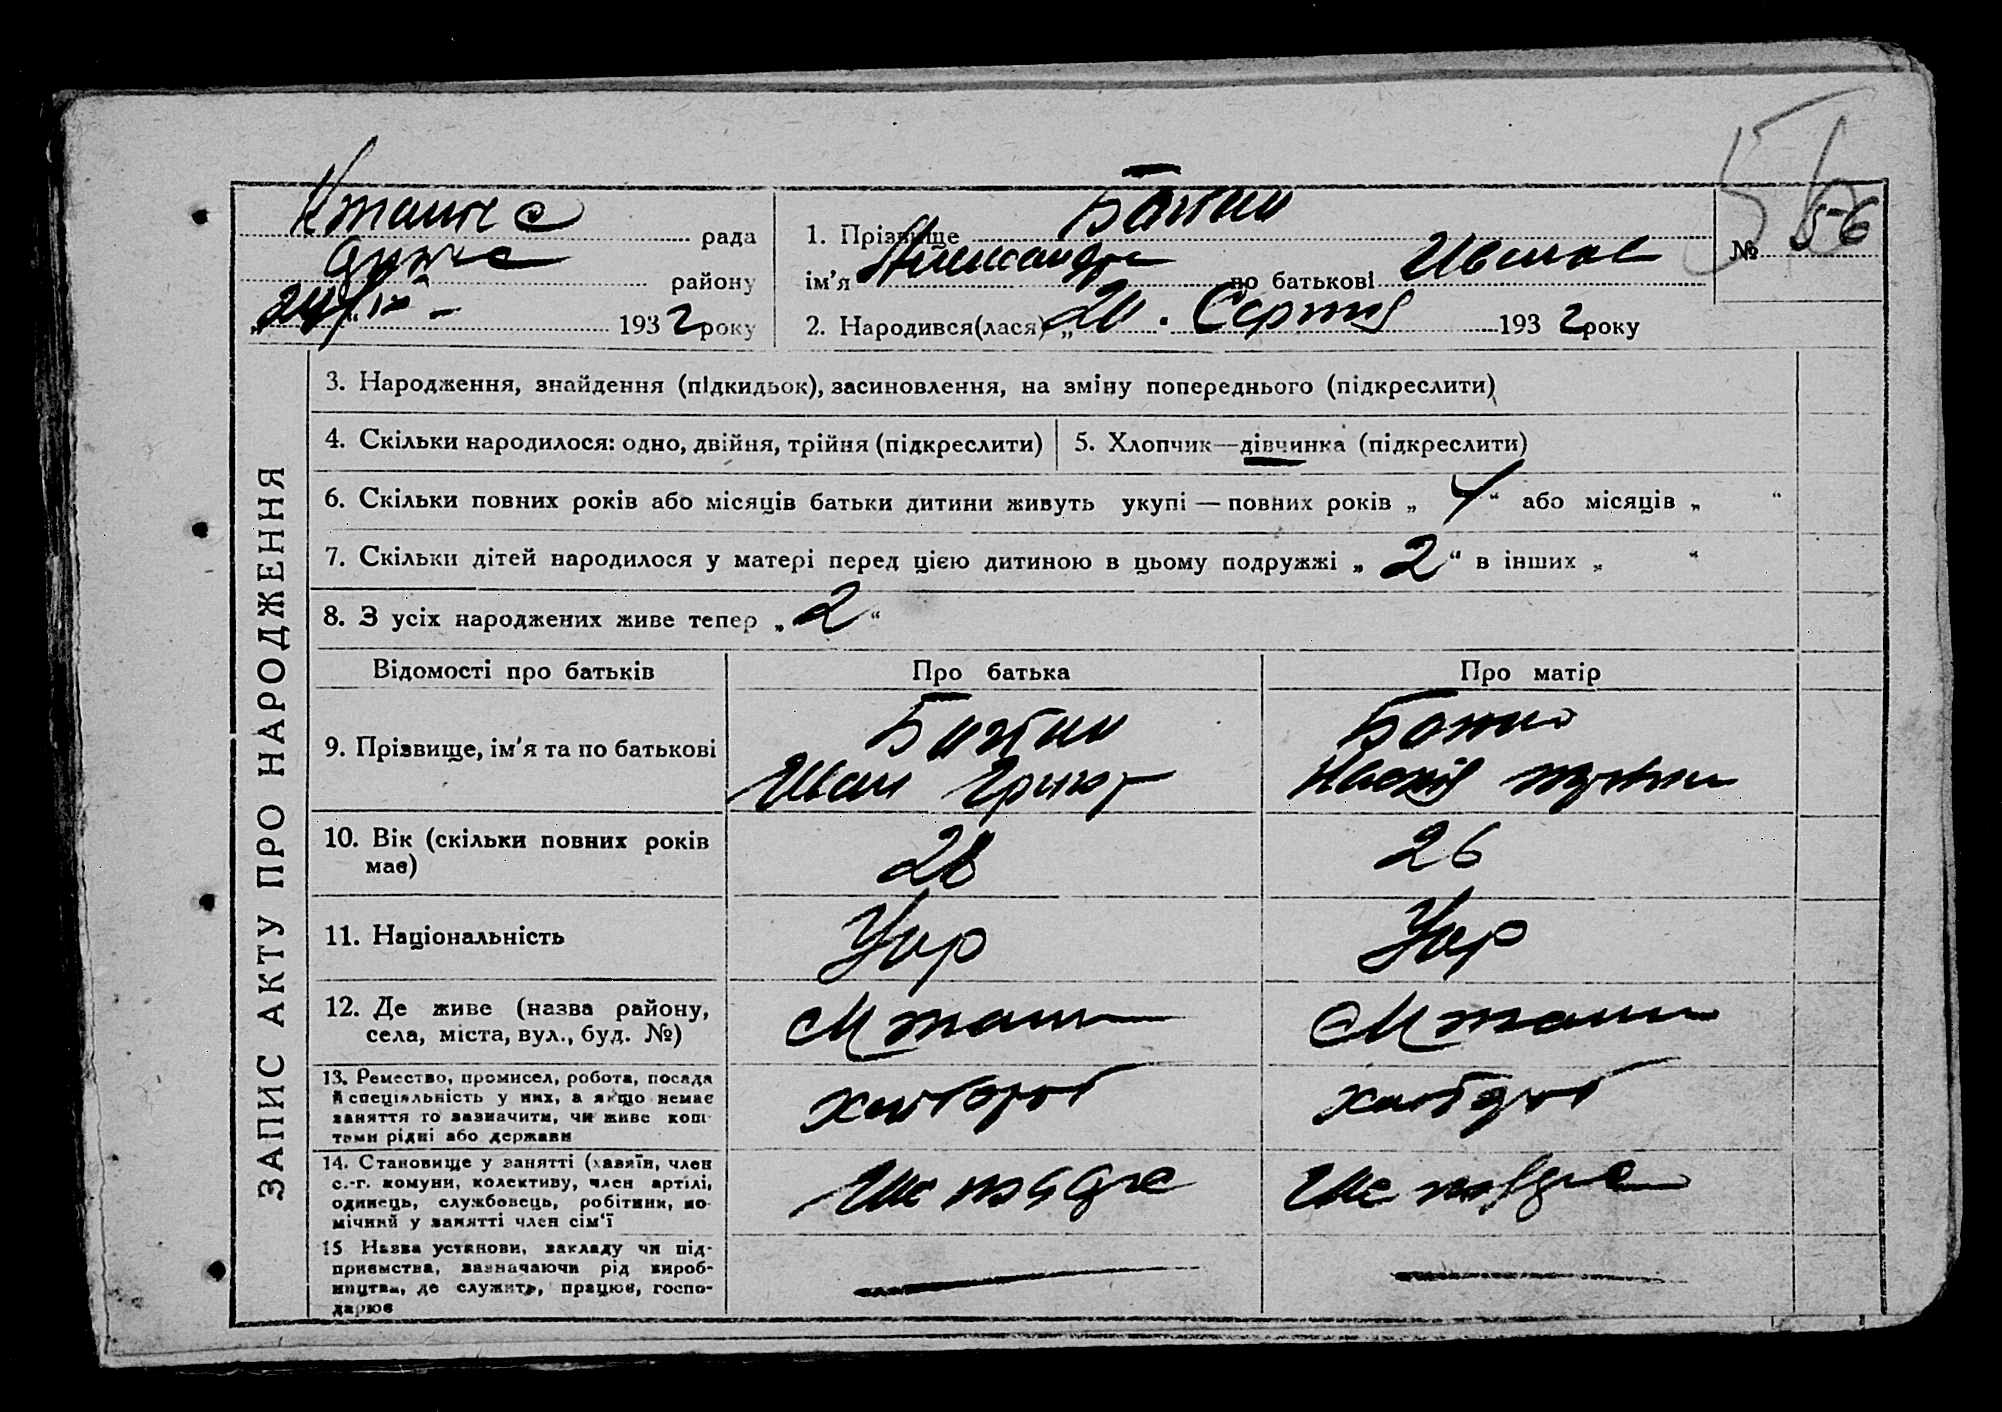 рада
району
193 2 року
1. Прізвище Божко
ім'я Александра по батькові
№ 56
2. Народився(лася) „20. Серпня 193 2 року
ЗАПИС АКТУ ПРО НАРОДЖЕННЯ
3. Народження, знайдення (підкидьок), засиновлення, на зміну попереднього (підкреслити)
4. Скільки народилося: одно, двійня, трійня (підкреслити)
5. Хлопчик—дівчинка (підкреслити)
6. Скільки повних років або місяців батьки дитини живуть укупі — повних років „ “ або місяців „ “
7. Скільки дітей народилося у матері перед цією дитиною в цьому подружжі „ 2 “ в інших „ “
8. З усіх народжених живе тепер „ 2 “
Відомості про батьків
Про батька
Про матір
9. Прізвище, ім'я та по батькові
Божко
Иван
Божко
10. Вік (скільки повних років
має)
28
26
11. Національність
Укр
Укр
12. Де живе (назва району,
села, міста, вул., буд. №)
13. Ремество, промисел, робота, посада
й спеціяльність у них, а якщо немає
заняття то зазначити, чи живе кош-
тами рідні або держави
хлібороб
хлібороб
14. Становище у занятті (хазяїн, член
с.-г. комуни, колективу, член артілі,
одинець, службовець, робітник, по-
мічний у занятті член сім'ї
15 Назва установи, закладу чи під-
приємства, зазначаючи рід вироб-
ництва, де служить, працює, госпо-
дарює